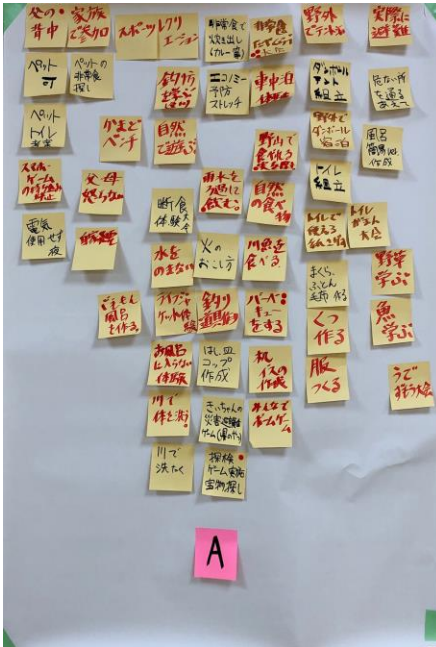 父の
背中
家族
で参加
スポーツレクリ
エーション
非常食で
炊き出し
(カレー等)
非常食
野外
でテント泊
実際に
避難
ペット
可
ペットの
非常食
探し
釣り
エコノミー
予防
ストレッチ
車中泊
体験
ダンボール
テント
組立
危ない所
を通る
あえて
ペット
トイレ
かまど
ベンチ
自然
で遊ぶ
野山で
食べれる
野外で
ダンボール
宿泊
風呂
簡易的
作成
父母
怒らない
断食
体験
雨水を
ろ過して
飲む
自然
の食べ
物
トイレ
組立
電気
使用せず
夜
水を
のまない
火の
おこし方
川魚を
食べる
トイレで
使える
紙
トイレ
がまん
大会
まくら
ふとん
毛布 作る
野草
学ぶ
風呂
を作る
釣り
道具作り
バーベ
キュー
をする
くつ
作る
魚
学ぶ
お風呂
に入らない
体験
はし、皿
コップ
作成
机
イスの
作成
服
つくる
うで
ずもう大会
川で
体を洗う
きぃちゃんの
災害避難
ゲーム
みんなで
ホームゲーム
川で
洗たく
探検
ゲーム実施
宝物探し
A